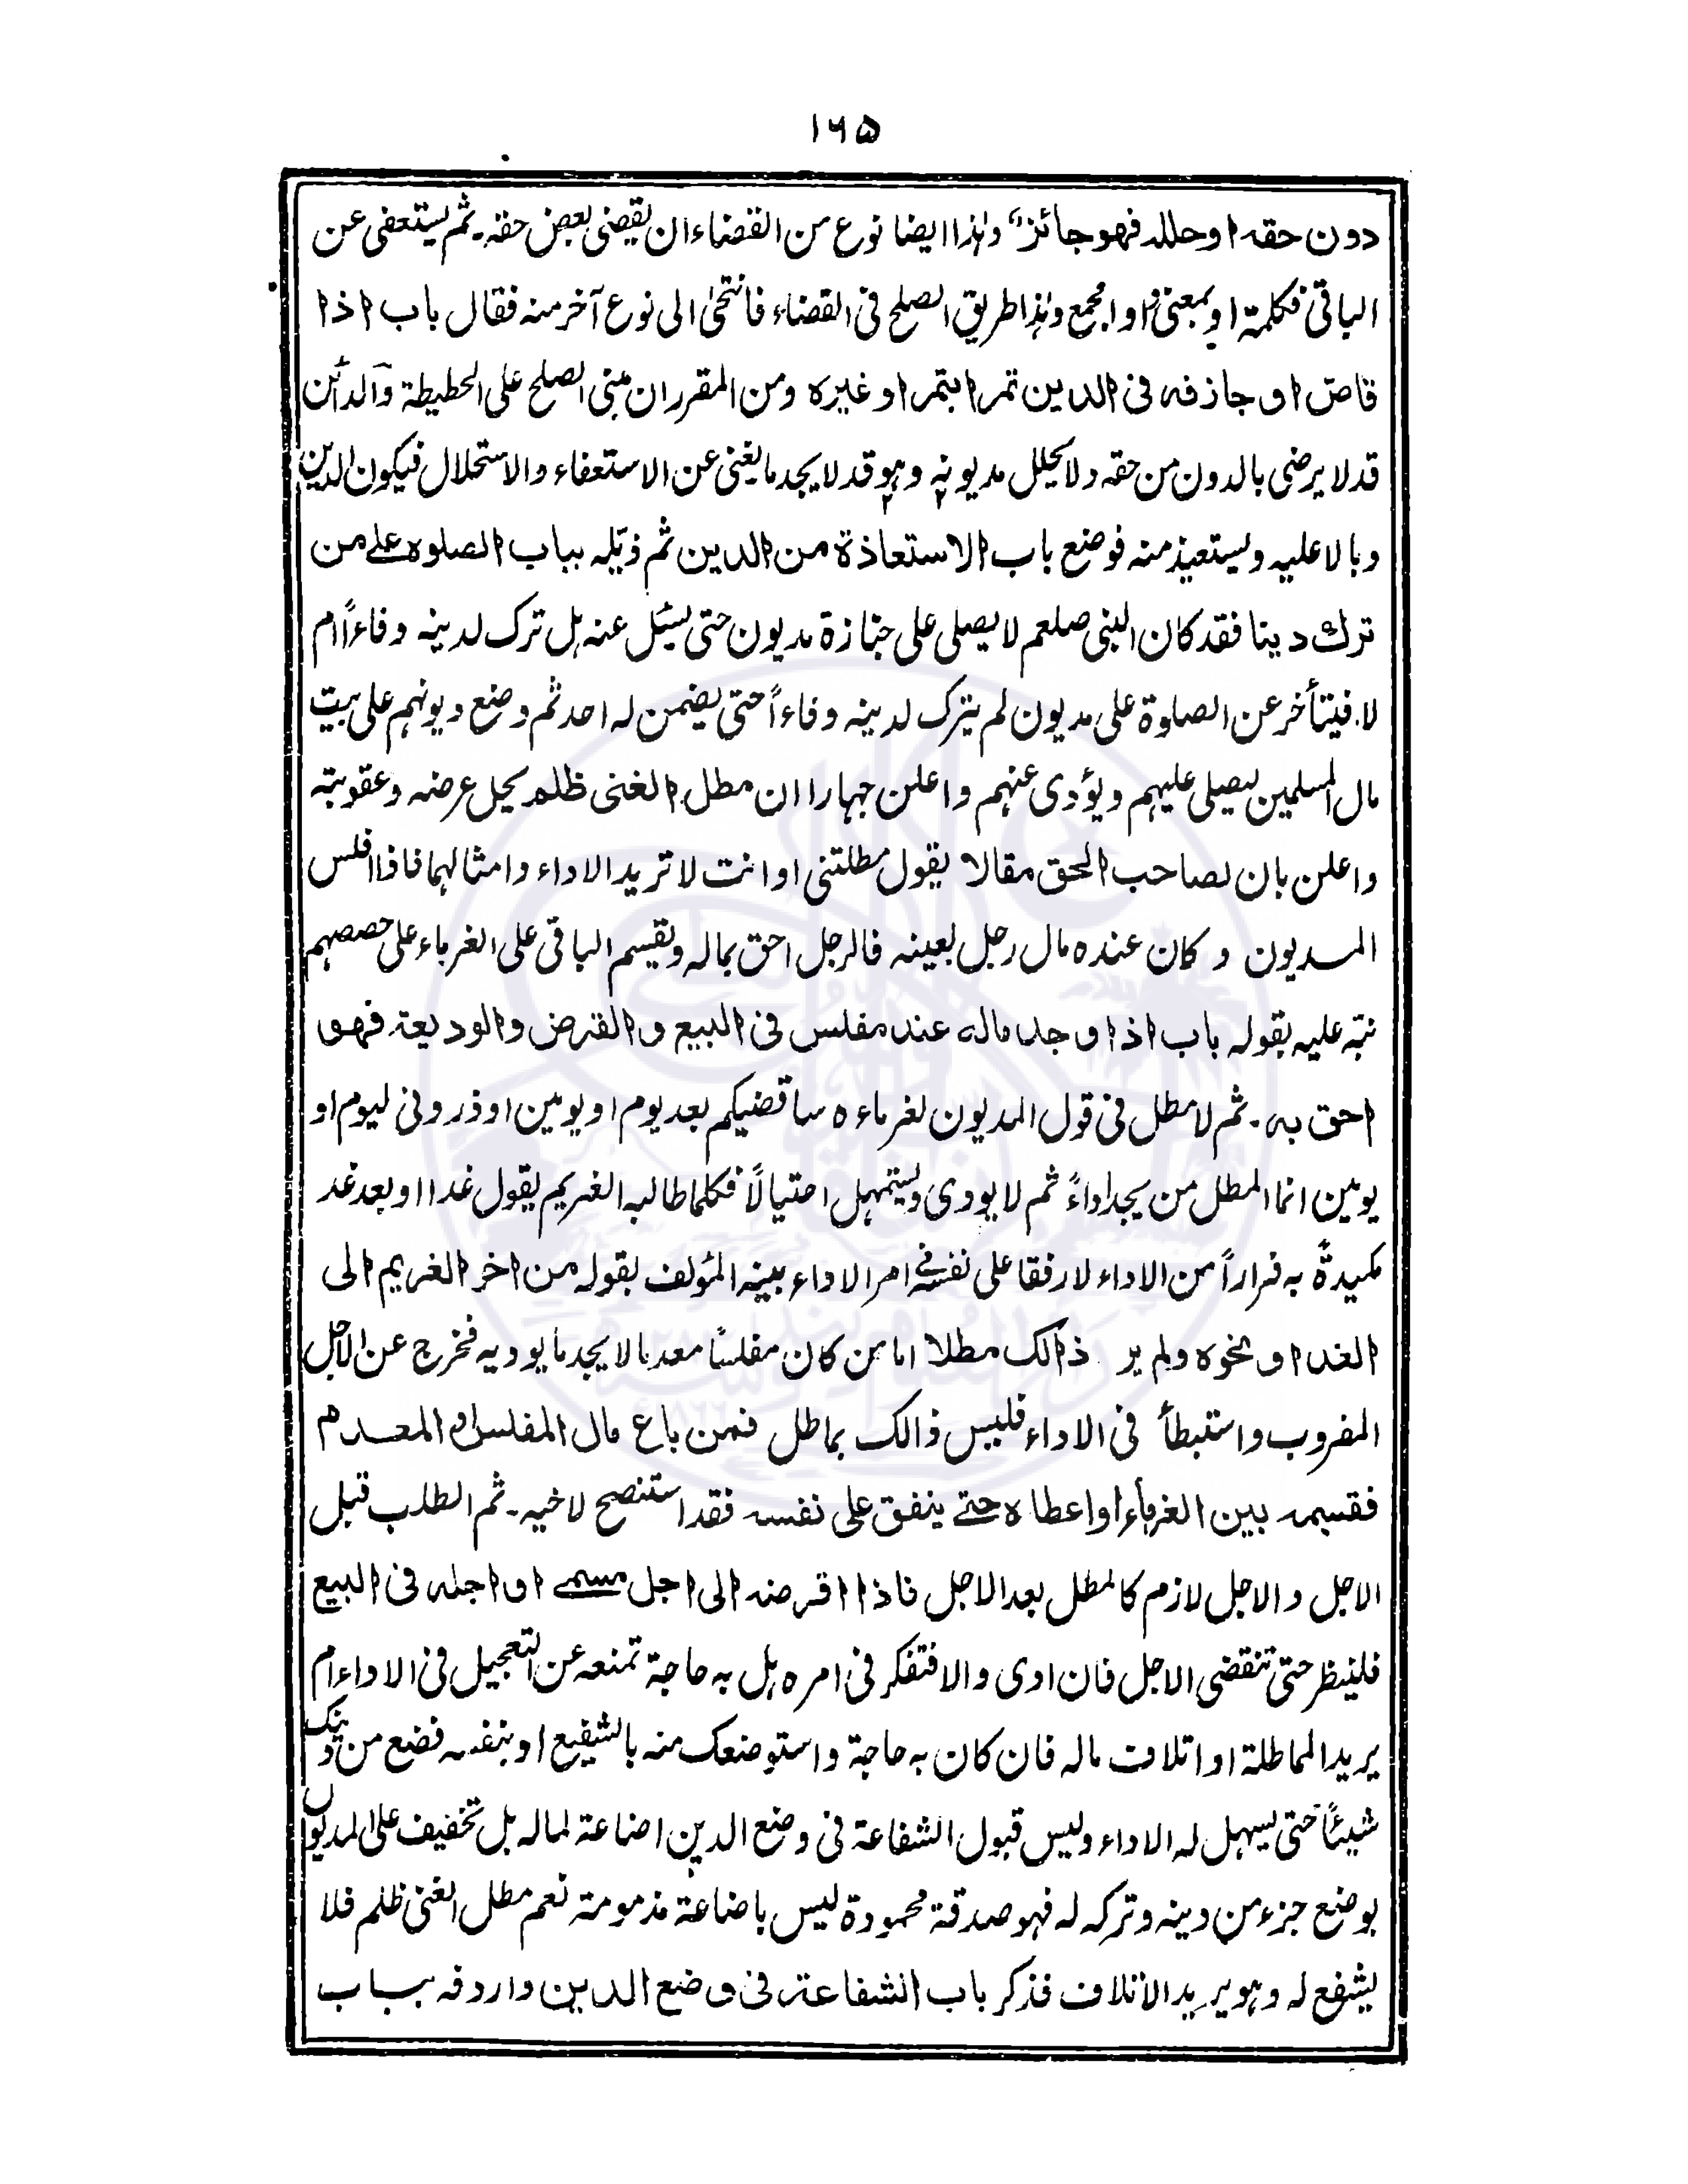 ۱۶۵
دون حقه او حلله فهو جائز" وہٰذا ایضا نوع من القضاء ان یقضی بعض حقہ۔ ثم یستعفی عن
الباقی فکلمة او بمعنی واو الجمع وہٰذا طریق الصلح فی القضاء فانتحیٰ الی نوع آخر منہ فقال باب اذا
قاصّ او جازفه فی الدین تمرا بتمر او غیرہ ومن المقرر ان مبنی الصلح علی الحطیطة والدائن
قد لا یرضی بالدون من حقہ ولا یحلل مدیونہ وہو قد لا یجد ما یغنی عن الاستعفاء والاستحلال فیکون الدین
وبالا علیہ ویستعیذ منہ فوضع باب الاستعاذة من الدین ثم ذیّلہ بباب الصلوة علے من
ترك دینا فقد کان النبی صلعم لا یصلی علی جنازة مدیون حتی یسئل عنہ ہل ترک لدینہ وفاءاً ام
لا. فیتأخر عن الصلوة علی مدیون لم یترک لدینہ وفاءاً حتی یضمن لہ احد ثم وضع دیونہم علی بیت
مال المسلمین لیصلی علیہم ویؤدی عنہم واعلن جہارا ان مطل الغنی ظلم یحل عرضہ وعقوبتہ
واعلن بان لصاحب الحق مقالا یقول مطلتنی او انت لا ترید الاداء وامثالہما فاذا افلس
المدیون وکان عندہ مال رجل بعینہ فالرجل احق بمالہ ویقسم الباقی علی الغرماء علی حصصہم
نبّہ علیہ بقولہ باب اذا وجد ماله عند مفلس فی البیع والقرض والودیعة فهو
احق به۔ ثم لا مطل فی قول المدیون لغرماءہ ساقضیکم بعد یوم او یومین او ذرونی لیوم او
یومین انما المطل من یجد اداءً ثم لا یودی ویستمہل احتیالاً فکلما طالبہ الغریم یقول غدا او بعد غد
مکیدةً بہ فراراً من الاداء لا رفقا علی نفسہ فی امر الاداء بینہ المؤلف بقولہ من اخر الغریم الی
الغد او نحوہ ولم یر ذالک مطلا اما من کان مفلسًا معدما لا یجد ما یودیہ فخرج عن الاجل
المضروب واستبطأ فی الاداء فلیس ذالک بماطل فمن باع مال المفلس او المعدم
فقسمہ بین الغرماء او اعطاہ حتے ینفق علی نفسہ فقد استنصح لاخیہ۔ ثم الطلب قبل
الاجل والاجل لازم کالمطل بعد الاجل فاذا اقرضہ الی اجل مسمے او اجله فی البیع
فلینظر حتی تنقضی الاجل فان ادی والا فتفکر فی امرہ ہل بہ حاجة تمنعہ عن التعجیل فی الاداء ام
یرید المماطلة او اتلاف مالہ فان کان بہ حاجة واستوضعک منہ بالشفیع او بنفسہ فضع من دینک
شیئاً حتی یسہل لہ الاداء ولیس قبول الشفاعة فی وضع الدین اضاعة لمالہ بل تخفیف علی المدیون
بوضع جزء من دینہ وترکہ لہ فہو صدقة محمودة لیس باضاعة مذمومة نعم مطل الغنی ظلم فلا
یشفع لہ وہو یرید الاتلاف فذکر باب الشفاعة فی وضع الدین واردفہ بباب